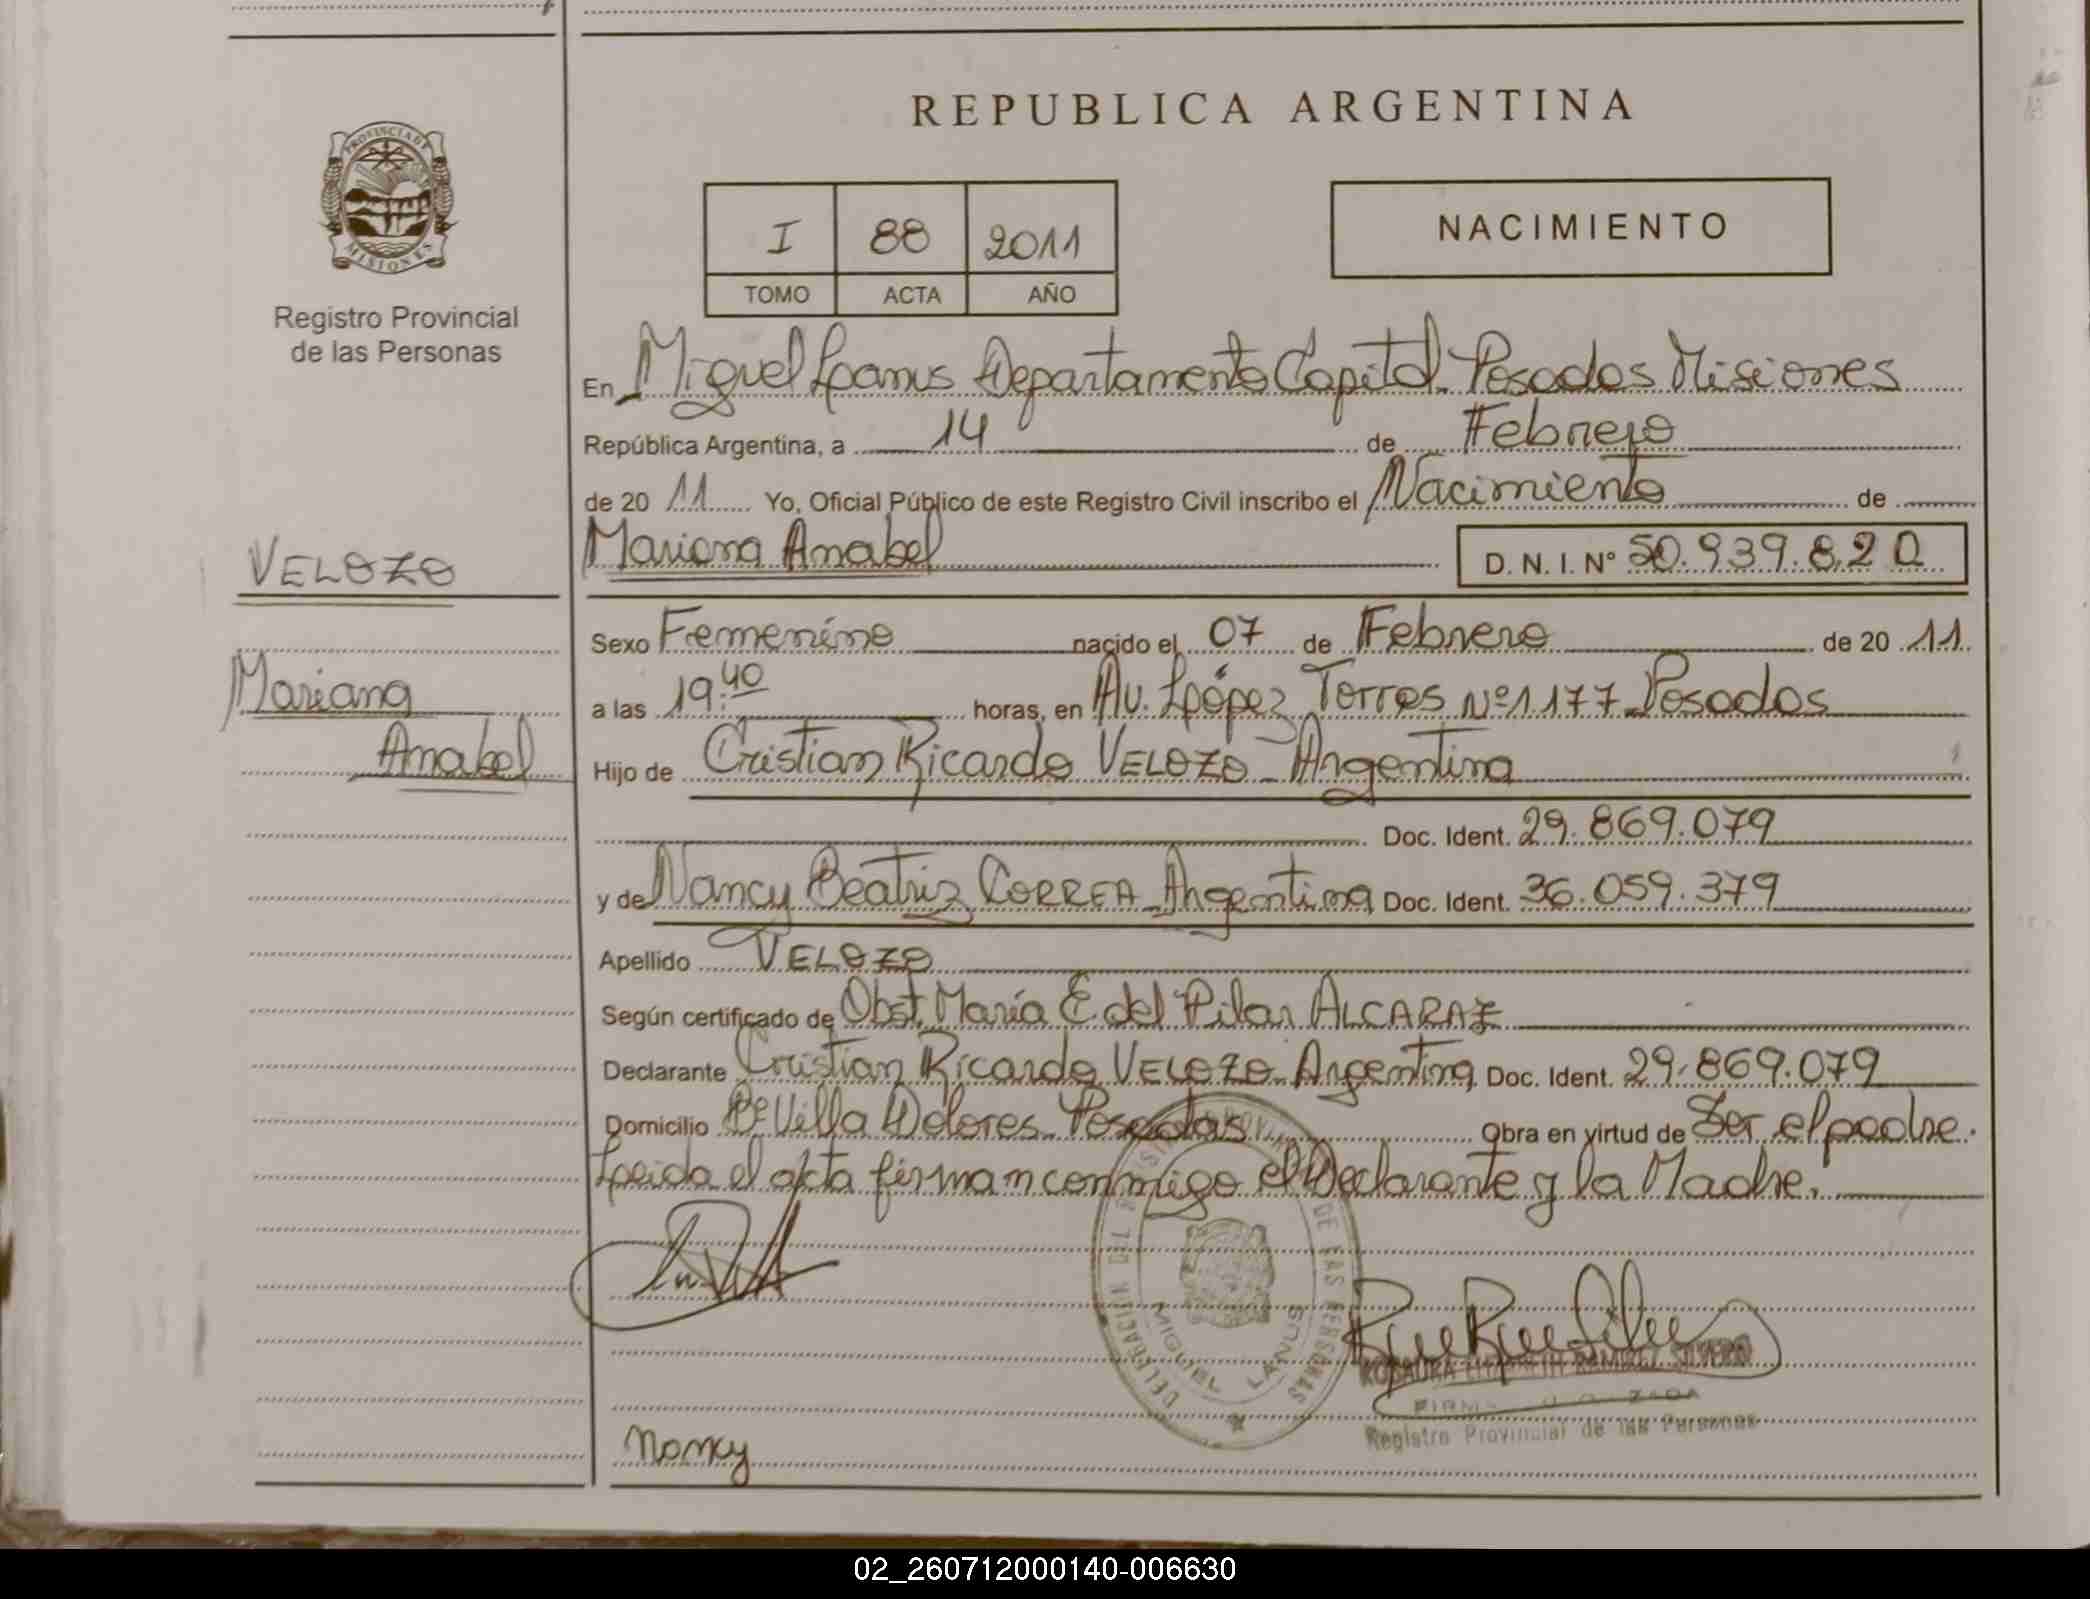 REPUBLICA ARGENTINA
PROVINCIA DE
MISIONES
Registro Provincial
de las Personas
I 88 2011
TOMO ACTA AÑO
NACIMIENTO
En Miguel Lanus Departamento Capital Posadas Misiones
República Argentina, a 14 de Febrero
de 20 11 Yo, Oficial Público de este Registro Civil inscribo el Nacimiento de
Mariana Anabel D. N. I. Nº 50.939.820
VELOZO
Mariana
Anabel
Sexo Femenino nacido el 07 de Febrero de 20 11
a las 19:40 horas, en Av. López Torres Nº 1177 Posadas
Hijo de Cristian Ricardo VELOZO - Argentina
Doc. Ident. 29.869.079
y de Nancy Beatriz CORREA - Argentina Doc. Ident. 36.059.379
Apellido VELOZO
Según certificado de Obst. María E. del Pilar ALCARAZ
Declarante Cristian Ricardo VELOZO Argentina Doc. Ident. 29.869.079
Domicilio Bº Villa Dolores Posadas Obra en virtud de Ser el padre.
Leida el acta firman conmigo el Declarante y la Madre.
DELEGACION DEL DE LAS PERSONAS
MIGUEL LANUS
RAMIREZ SILVERO
Registro Provincial de las Personas
Nancy
02_260712000140-006630